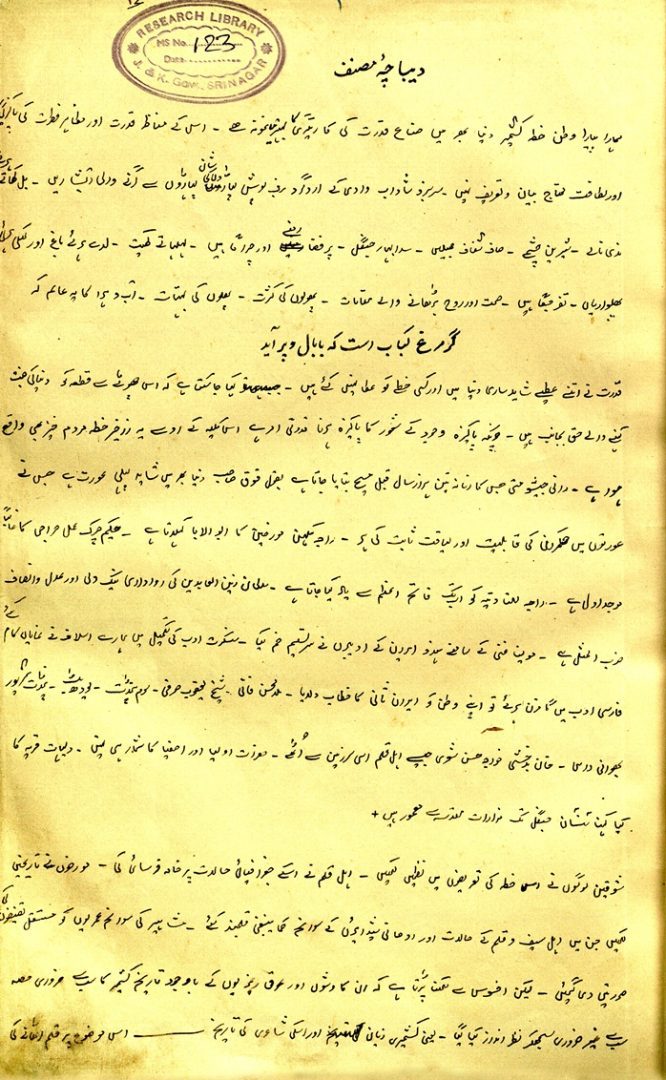 RESEARCH LIBRARY
MS No. 123
Date
J. & K. Govt. SRINAGAR
دیباچۂ مصنف
ہمارا پیارا وطن خطہ کشمیر دنیا بھر میں صناع قدرت کی کاریگری کا بہترین نمونہ ہے ۔ اس کے مناظر قدرت اور مظاہر فطرت کی پاکیزگی
اور لطافت محتاج بیان و تعریف نہیں ۔ سرسبز و شاداب وادی کے اردگرد برف پوش پہاڑ پہاڑوں سے گرنے والی آبشاریں ۔ بل کھاتے
ندی نالے ۔ شیریں چشمے ۔ صاف شفاف جھیلیں ۔ سدا بہار جنگل ۔ پرفضا اور چراگاہیں ۔ لہلہاتے کھیت ۔ لدے ہوئے باغ اور
پھلواریاں ۔ تفرجگاہیں ۔ صحت اور روح بڑھانے والے مقامات ۔ پھولوں کی کثرت ۔ پھلوں کی بہتات ۔ آب و ہوا کا یہ عالم کہ
گر مرغ کباب است کہ با بال و پر آید
قدرت نے اتنے عطیے شاید ساری دنیا میں اور کسی خطے کو عطا نہیں کئے ہیں ۔ کہا جا سکتا ہے کہ اس چھوٹے سے قطعہ کو دنیا کی جنت
کہنے والے حق بجانب ہیں ۔ چونکہ پاکیزہ وجود کے شعور کا پاکیزہ ہونا قدرتی امر ہے اسی کلیہ کے رو سے یہ زرخیز خطہ مردم خیز بھی واقع
ہوا ہے ۔ رانی جیشومتی جس کا زمانہ تین ہزار سال قبل مسیح بتایا جاتا ہے بقول فوق صاحب دنیا بھر میں شاید پہلی عورت ہے جس نے
عورتوں میں حکمرانی کی قابلیت اور لیاقت ثابت کی ہو ۔ راجہ کلہن مورخین کا ابو الآبا کہلاتا ہے ۔ حکیم چرک عمل جراحی کا غالباً
موجد اول ہے ۔ راجہ للتادتیہ کو ایک فاتح اعظم سے یاد کیا جاتا ہے ۔ سلطان زین العابدین کی رواداری نیک دلی اور عدل و انصاف
ضرب المثل ہے ۔ کے سامنے ہند و ایران کے ادیبوں نے سر تسلیم خم کیا ۔ سنسکرت ادب کی تکمیل میں ہمارے اسلاف نے نمایاں کام
فارسی ادب میں گامزن ہوئے تو اپنے وطن کو ایران ثانی کا خطاب دلایا ۔ محسن فانی ۔ شیخ یعقوب صرفی ۔ سوم پنڈت ۔ بودھ بٹ ۔ پنڈت
بھوانی داس ۔ خواجہ حسن شعری جیسے اہل قلم اسی سرزمین سے اٹھے ۔ حضرات اولیا اور اصفیا کا شمار ہی نہیں ۔ دیہات قریہ کا
کیا کہنا جنگل تک مزارات مقدسہ سے معمور ہیں +
شوقین لوگوں نے اس خطہ کی تعریفوں میں نظمیں لکھیں ۔ اہل قلم نے اسکے جغرافیائی حالات پر خامہ فرسائی کی ۔ مورخوں نے تاریخیں
لکھیں جن میں اہل سیف و قلم کے حالات اور روحانی پیشواؤں کے سوانح قلمبند کئے ۔ مشاہیر کی سوانح عمریوں کو مستقل تصنیفوں کی
صورتیں دی گئیں ۔ لیکن افسوس سے لکھنا پڑتا ہے کہ ان کاوشوں اور عرق ریزیوں کے باوجود تاریخ کشمیر کا سب سے ضروری حصہ
سب سے غیر ضروری سمجھکر نظر انداز کیا گیا ۔ یعنی کشمیری زبان اور اسکی شاعری کی تاریخ ــــــ اس موضوع پر قلم اٹھانے کی